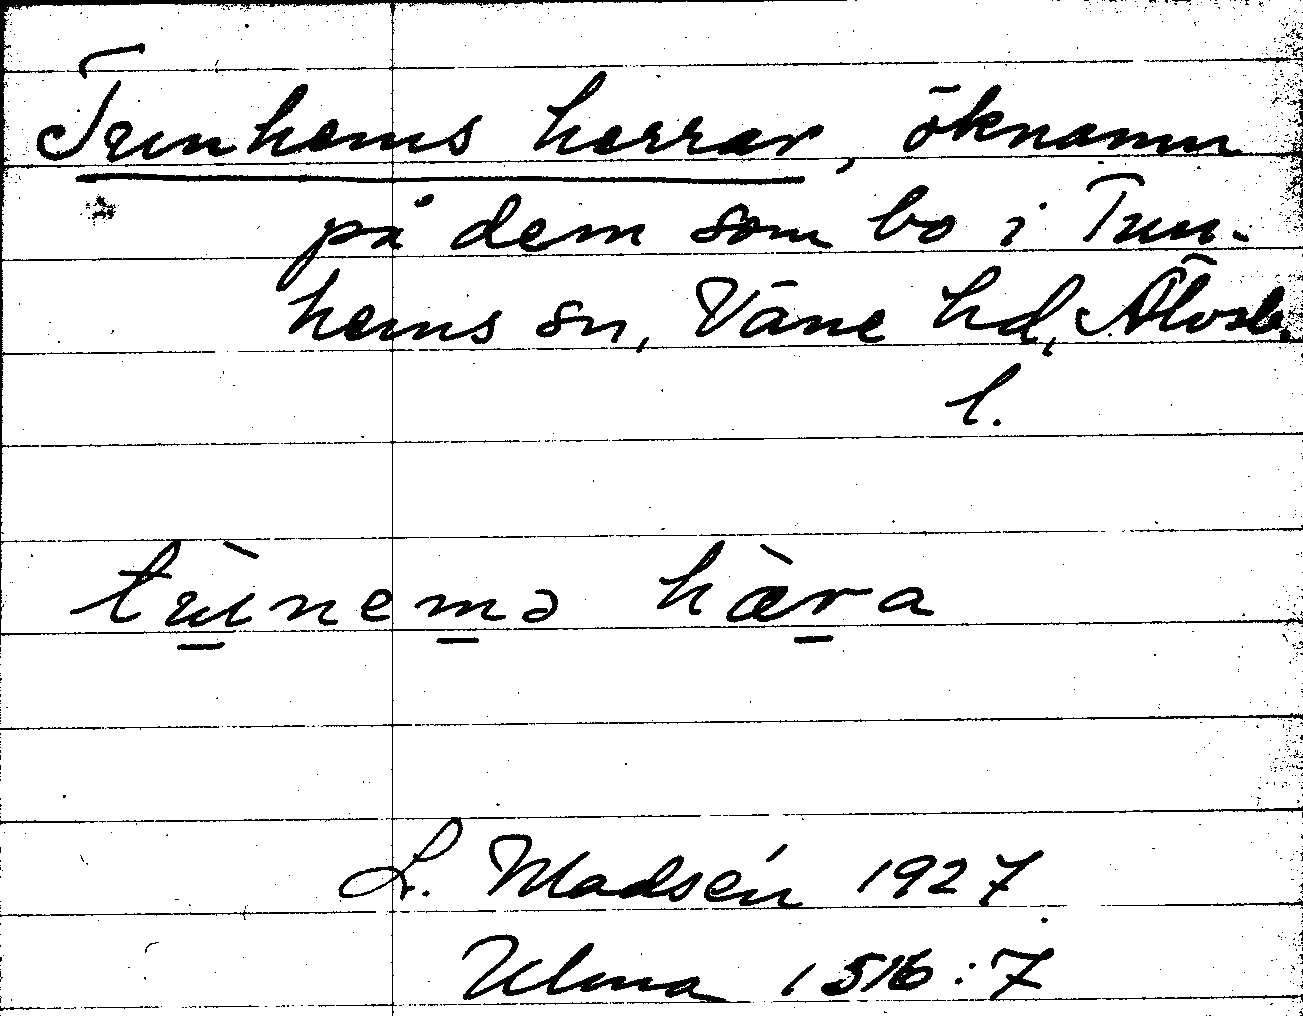 Tunhems herrar, öknamn
på dem som bo i Tun-
hems sn, Väne hd, Älvsb.
l.
tùnemə hæ̀ra
L. Madsén 1927
Ulma 1516:7